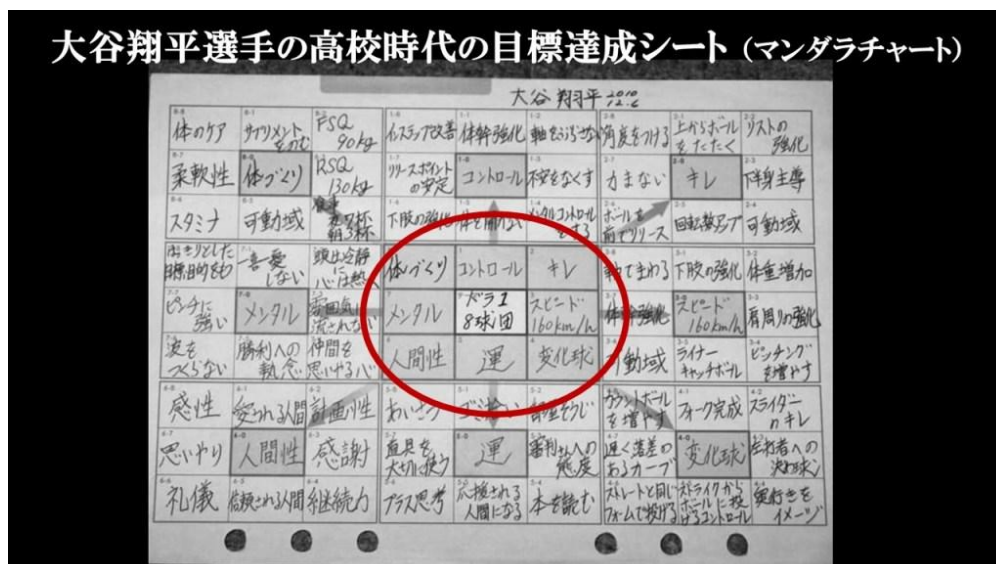 大谷翔平選手の高校時代の目標達成シート（マンダラチャート）
大谷 翔平 2010 12.6
体のケア サプリメントをのむ FSQ 90kg インステップ改善 体幹強化 軸をぶらさない 角度をつける 上からボールをたたく リストの強化
柔軟性 体づくり RSQ 130kg リリースポイントの安定 コントロール 不安をなくす 力まない キレ 下半身主導
スタミナ 可動域 夜7杯 朝3杯 下肢の強化 体を開かない メンタルコントロールをする ボールを前でリリース 回転数アップ 可動域
はっきりとした目標、目的をもつ 一喜一憂しない 頭は冷静に 心は熱く 体づくり コントロール キレ 軸でまわる 下肢の強化 体重増加
ピンチに強い メンタル 雰囲気に流されない メンタル ドラ1 8球団 スピード 160km/h 体幹強化 スピード 160km/h 肩周りの強化
波をつくらない 勝利への執念 仲間を思いやる心 人間性 運 変化球 可動域 ライナーキャッチボール ピッチングを増やす
感性 愛される人間 計画性 あいさつ ゴミ拾い 部屋そうじ カウントボールを増やす フォーク完成 スライダーのキレ
思いやり 人間性 感謝 道具を大切に使う 運 審判さんへの態度 遅く落差のあるカーブ 変化球 左打者への決め球
礼儀 信頼される人間 継続力 プラス思考 応援される人間になる 本を読む ストレートと同じフォームで投げる ストライクからボールに投げるコントロール 奥行きをイメージ